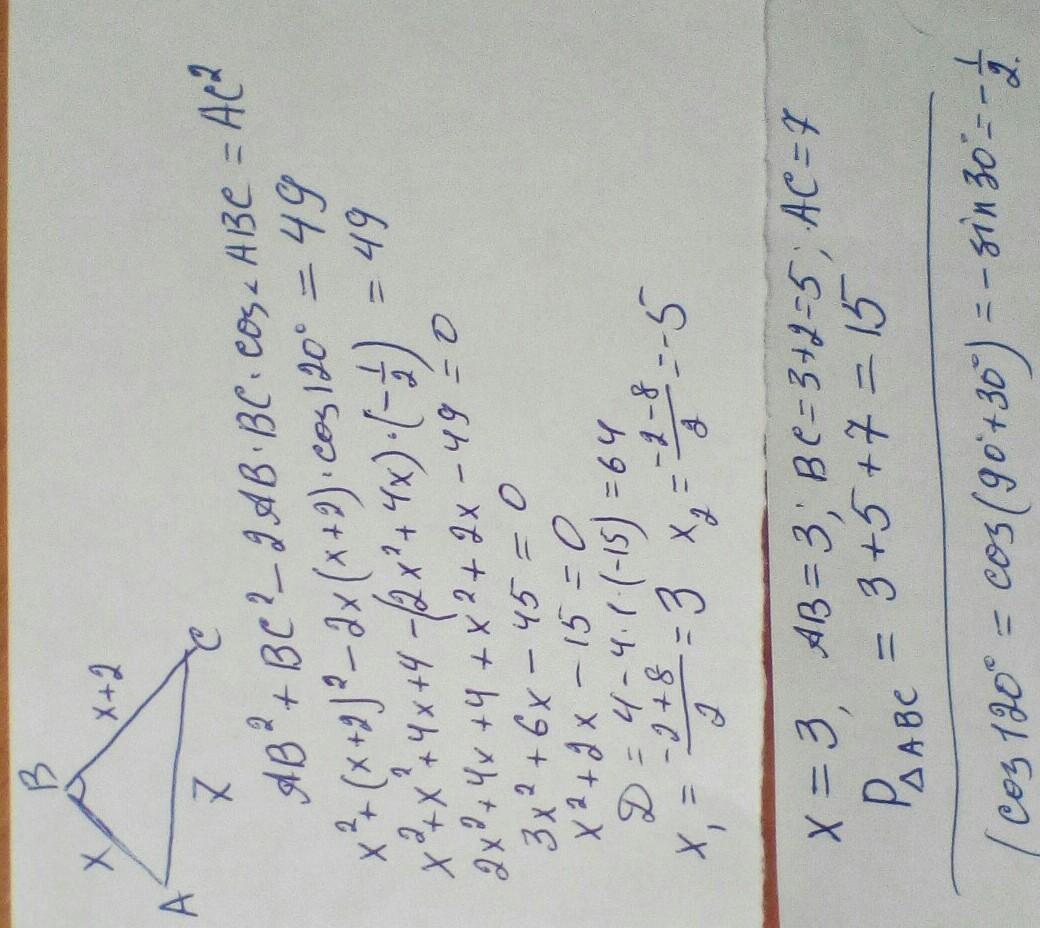 B
x
x+2
A
C
7
AB² + BC² - 2AB·BC·cos∠ABC = AC²
x² + (x+2)² - 2x(x+2)·cos120° = 49
x² + x² + 4x + 4 - (2x² + 4x)·(-1/2) = 49
2x² + 4x + 4 + x² + 2x - 49 = 0
3x² + 6x - 45 = 0
x² + 2x - 15 = 0
D = 4 - 4·1·(-15) = 64
x₁ = (-2+8)/2 = 3 x₂ = (-2-8)/2 = -5
x = 3, AB = 3; BC = 3+2 = 5; AC = 7
P△ABC = 3 + 5 + 7 = 15
(cos120° = cos(90°+30°) = -sin30° = -1/2.